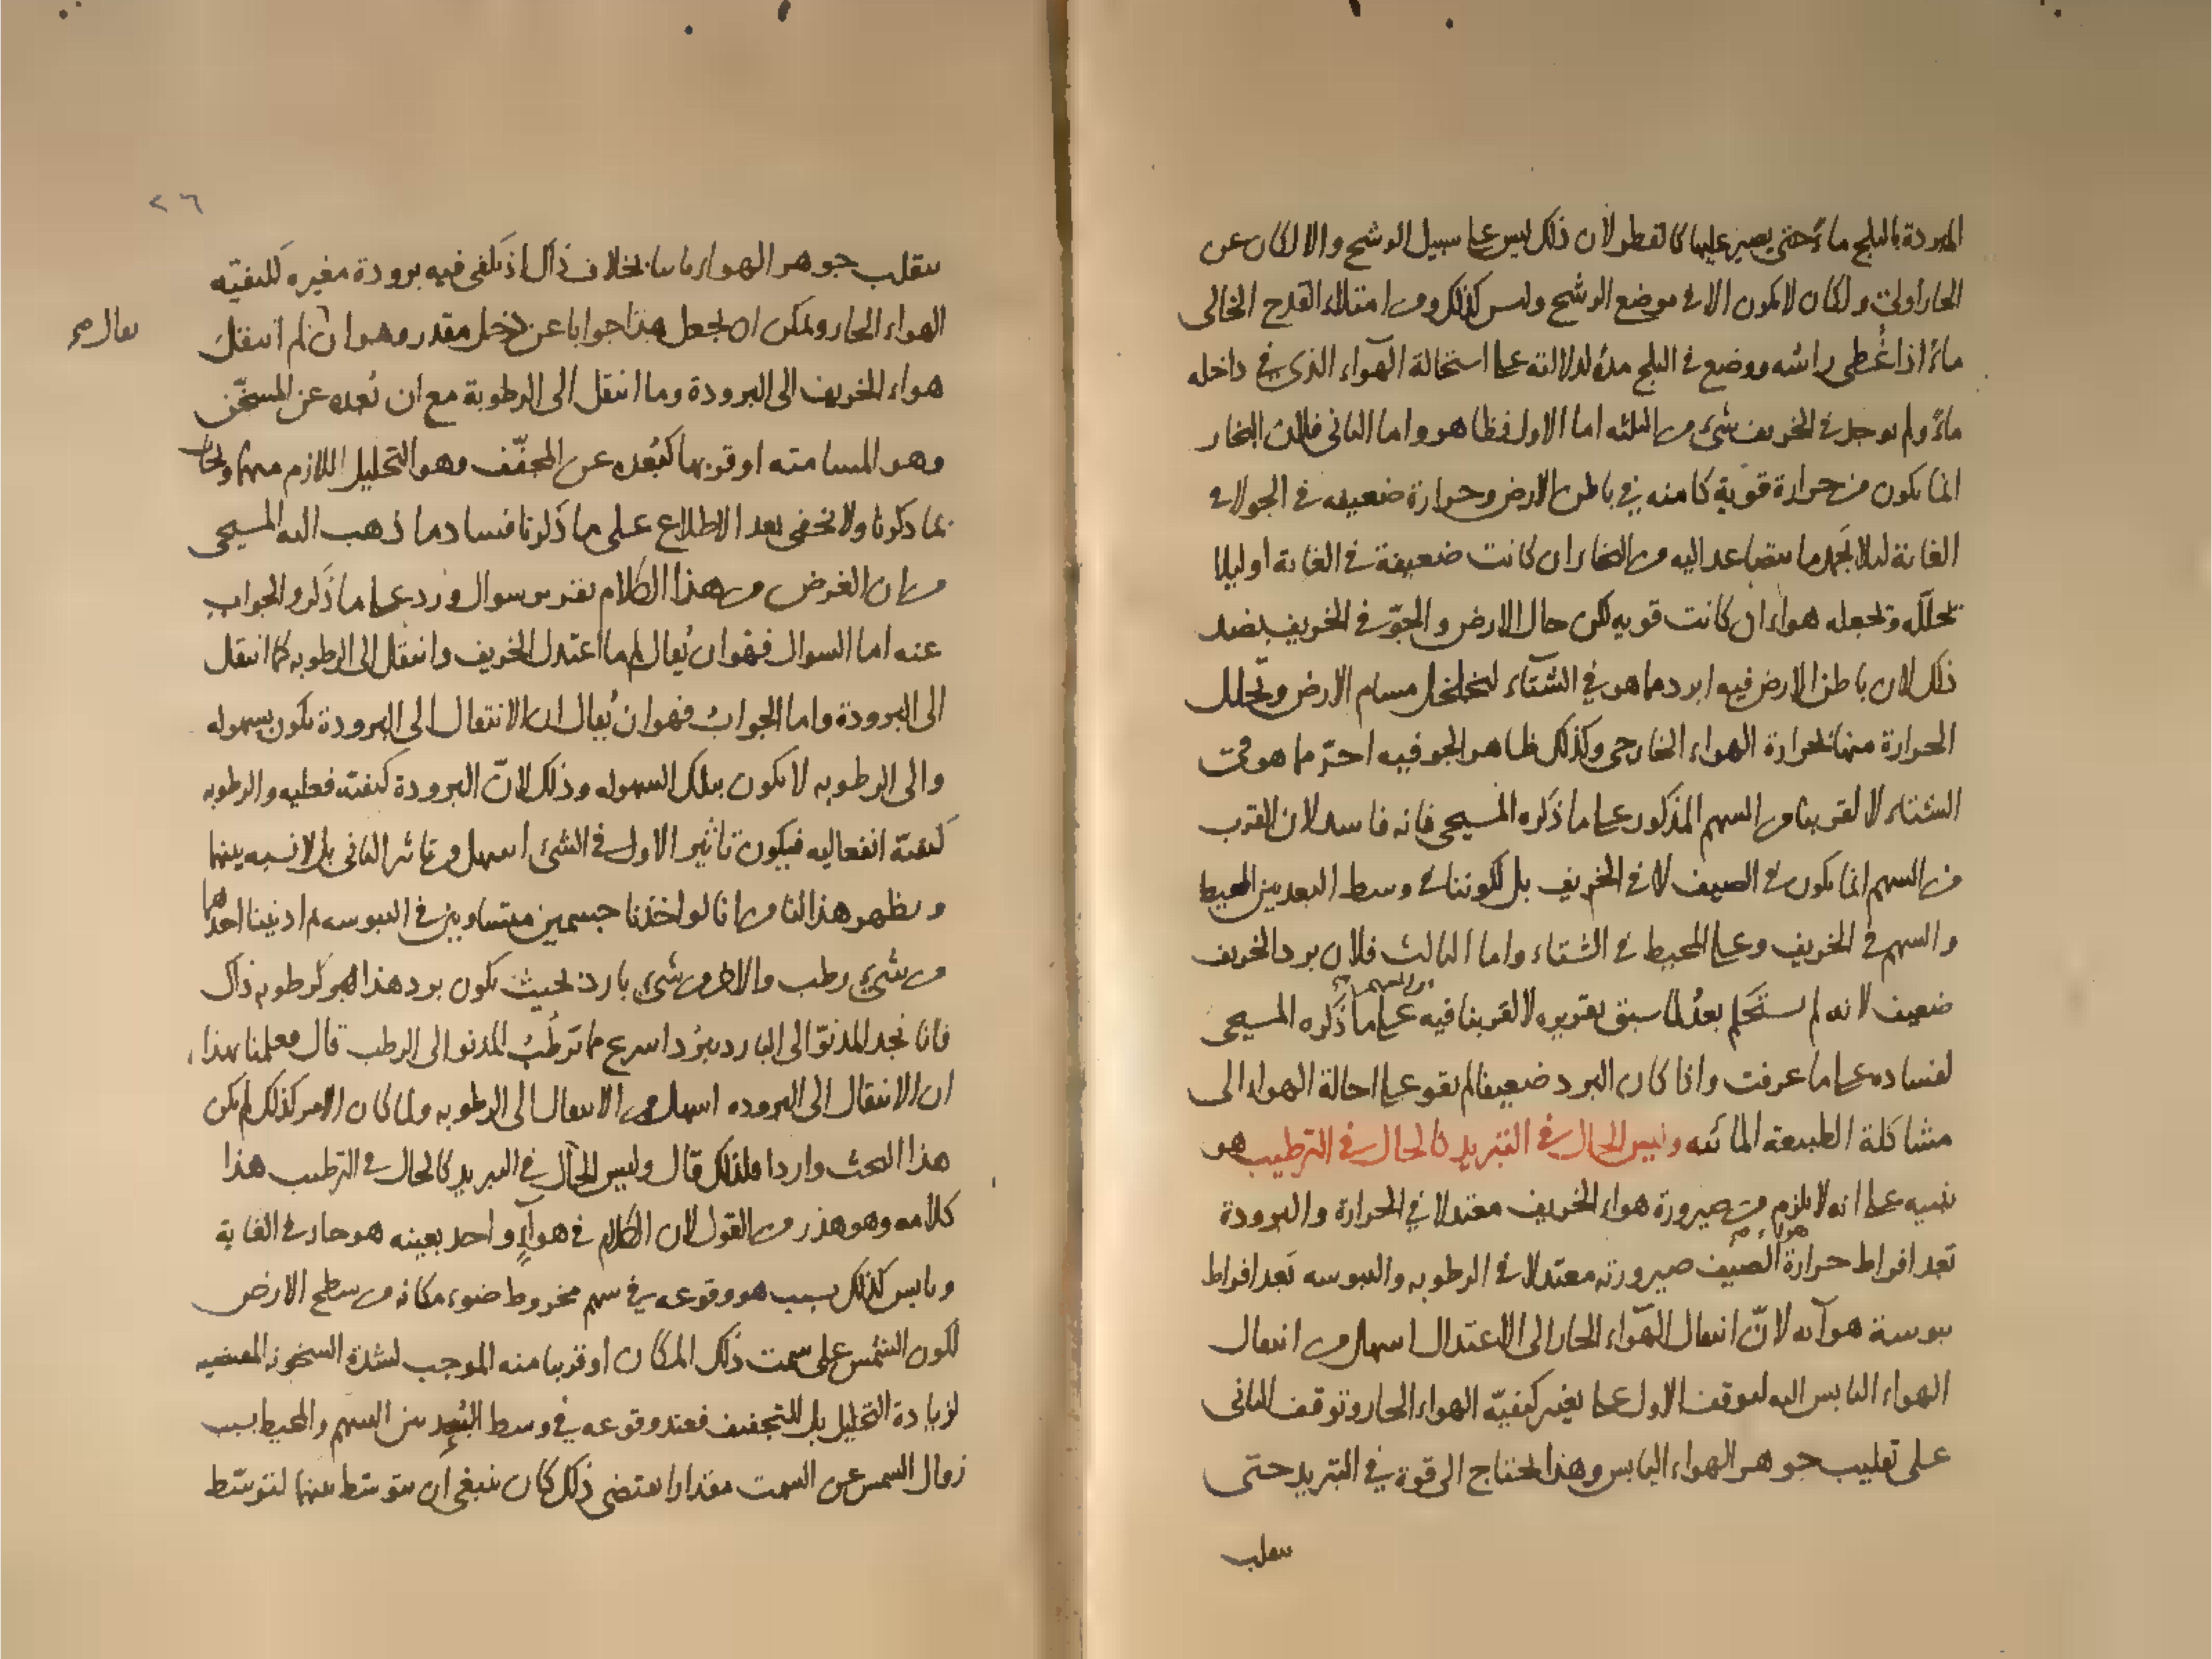 المبردة بالثلج ماءً حتى يصير عليها كالقطر لأن ذلك ليس على سبيل الرشح والا لكان عن
الحار اولى ولكان لا يكون الا في موضع الرشح وليس كذلك ومن امتلاء القدح الخالى
ماءً اذا غُطى راسه ووضع في الثلج مدة لدلالته على استحالة الهواء الذى في داخله
ماءً ولم يوجد في الخريف شئ من الثلثه اما الاول فظاهر واما الثانى فلان البخار
انما يكون من حرارة قوية كامنه في باطن الارض وحرارة ضعيفه في الجو لا في
الغاية ليلا يجمد ما يتصاعد اليه من البخار ان كانت ضعيفة في الغاية او ليلا
تحلله وتجعله هواء ان كانت قويه لكن حال الارض والجوّ في الخريف بضد
ذلك لان باطن الارض فيه ابرد مما هو في الشتاء لتخلخل مسام الارض وتحلل
الحرارة منها لحرارة الهواء الخارجى وكذلك ظاهر الجو فيه احرّ مما هو في
الشتاء لا لقربنا من السهم المذكور على ما ذكره المسيحى فانه فاسد لان القرب
من السهم انما يكون في الصيف لا في الخريف بل لكوننا في وسط البعد بين المحيط
والسهم في الخريف وعلى المحيط في الشتاء واما الثالث فلان برد الخريف
ضعيف لانه لم يستحكم بعدُ لما سبق تقريره لا لقربنا فيه من السهم على ما ذكره المسيحى
لفساده على ما عرفت واذا كان البرد ضعيفا لم يقو على احالة الهواء الى
مشاكلة الطبيعة المائيه وليس الحال في التبريد كالحال في الترطيب هو
تنبيه على انه لا يلزم من صيرورة هواء الخريف معتدلا في الحرارة والبرودة
بعد افراط حرارة هواء الصيف صيرورته معتدلا في الرطوبه واليبوسه بَعد افراط
يبوسة هوآئه لانّ انتقال الهواء الحار الى الاعتدال اسهل من انتقال
الهواء اليابس اليه لتوقف الاول على تغير كيفيّة الهواء الحار وتوقف الثانى
على تقليب جوهر الهواء اليابس وهذا يحتاج الى قوة في التبريد حتى
ينقلب
٢٦
ينقلب جوهر الهواء بخلاف ذاك اذ يكفى فيه برودة مغيره لكيفيّة
الهواء الحار ويمكن ان يجعل هذا جوابا عن دخل مقدر وهو ان لم انتقل
هواء الخريف الى البرودة وما انتقل الى الرطوبة مع ان بُعده عن المسخّن
وهو المسامته او قربها كبُعده عن المجفّف وهو التحليل اللازم منهما ويجاب
بما ذكرنا ولا يخفى بعد الاطلاع على ما ذكرنا فساد ما ذهب اليه المسيحى
من ان الغرض من هذا الكلام تقرير سوال ورد على ما ذكر والجواب
عنه اما السوال فهو ان يُقال لم ما اعتدل الخريف وانتقل الى الرطوبه كما انتقل
الى البرودة واما الجواب فهو ان يُقال ان الانتقال الى البرودة يكون بسهوله
والى الرطوبه لا يكون بتلك السهوله وذلك لانّ البرودة كيفية فعليه والرطوبه
كيفية انفعاليه فيكون تاثير الاول في الشئ اسهل من تاثير الثانى بل لا نسبه بينهما
ويظهر هذا لنا من انا لو اخذنا جسمين متساويين في اليبوسه ثم ادنينا احدهما
من شئ رطب والاخر من شئ بارد بحيث يكون برد هذا هو كرطوبه ذاك
فانا نجد المدنوّ الى البارد يبرُد اسرع مما ترطّب المدنو الى الرطب قال فعلمنا بهذا
ان الانتقال الى البروده اسهل من الانتقال الى الرطوبه ولما كان الامر كذلك لم يكن
هذا البحث واردا فلذلك قال وليس الحال في التبريد كالحال في الترطيب هذا
كلامه وهو هذر من القول لان الكلام في هوآءٍ واحد بعينه هو حار في الغاية
ويابس كذلك بسبب هو وقوعه في سهم مخروط ضوء مكانه من سطح الارض
لكون الشمس على سمت ذلك المكان او قريبا منه الموجب لشدة السخونه المقتضيه
لزيادة التحليل بل للتجفيف فعند وقوعه في وسط البُعد بين السهم والمحيط بسبب
زوال الشمس عن السمت مقدارا يقتضى ذلك كان ينبغى ان يتوسط بينهما لتوسّط